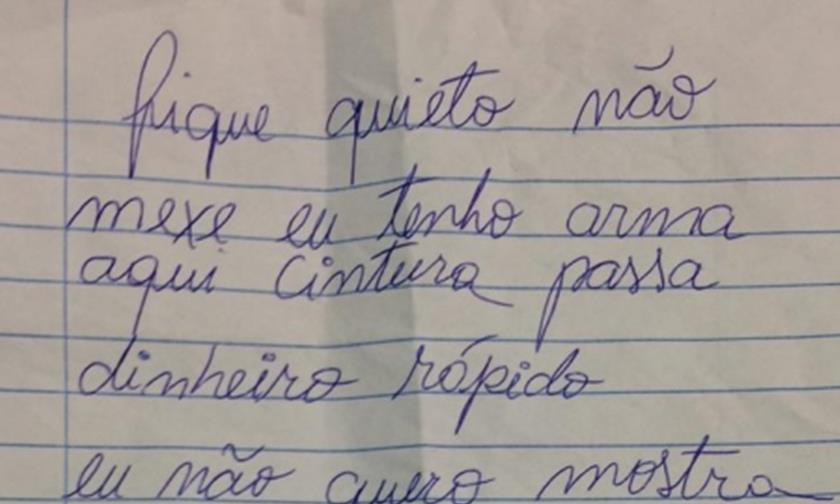 fique quieto não
mexe eu tenho arma
aqui cintura passa
dinheiro rápido
eu não quero mostra